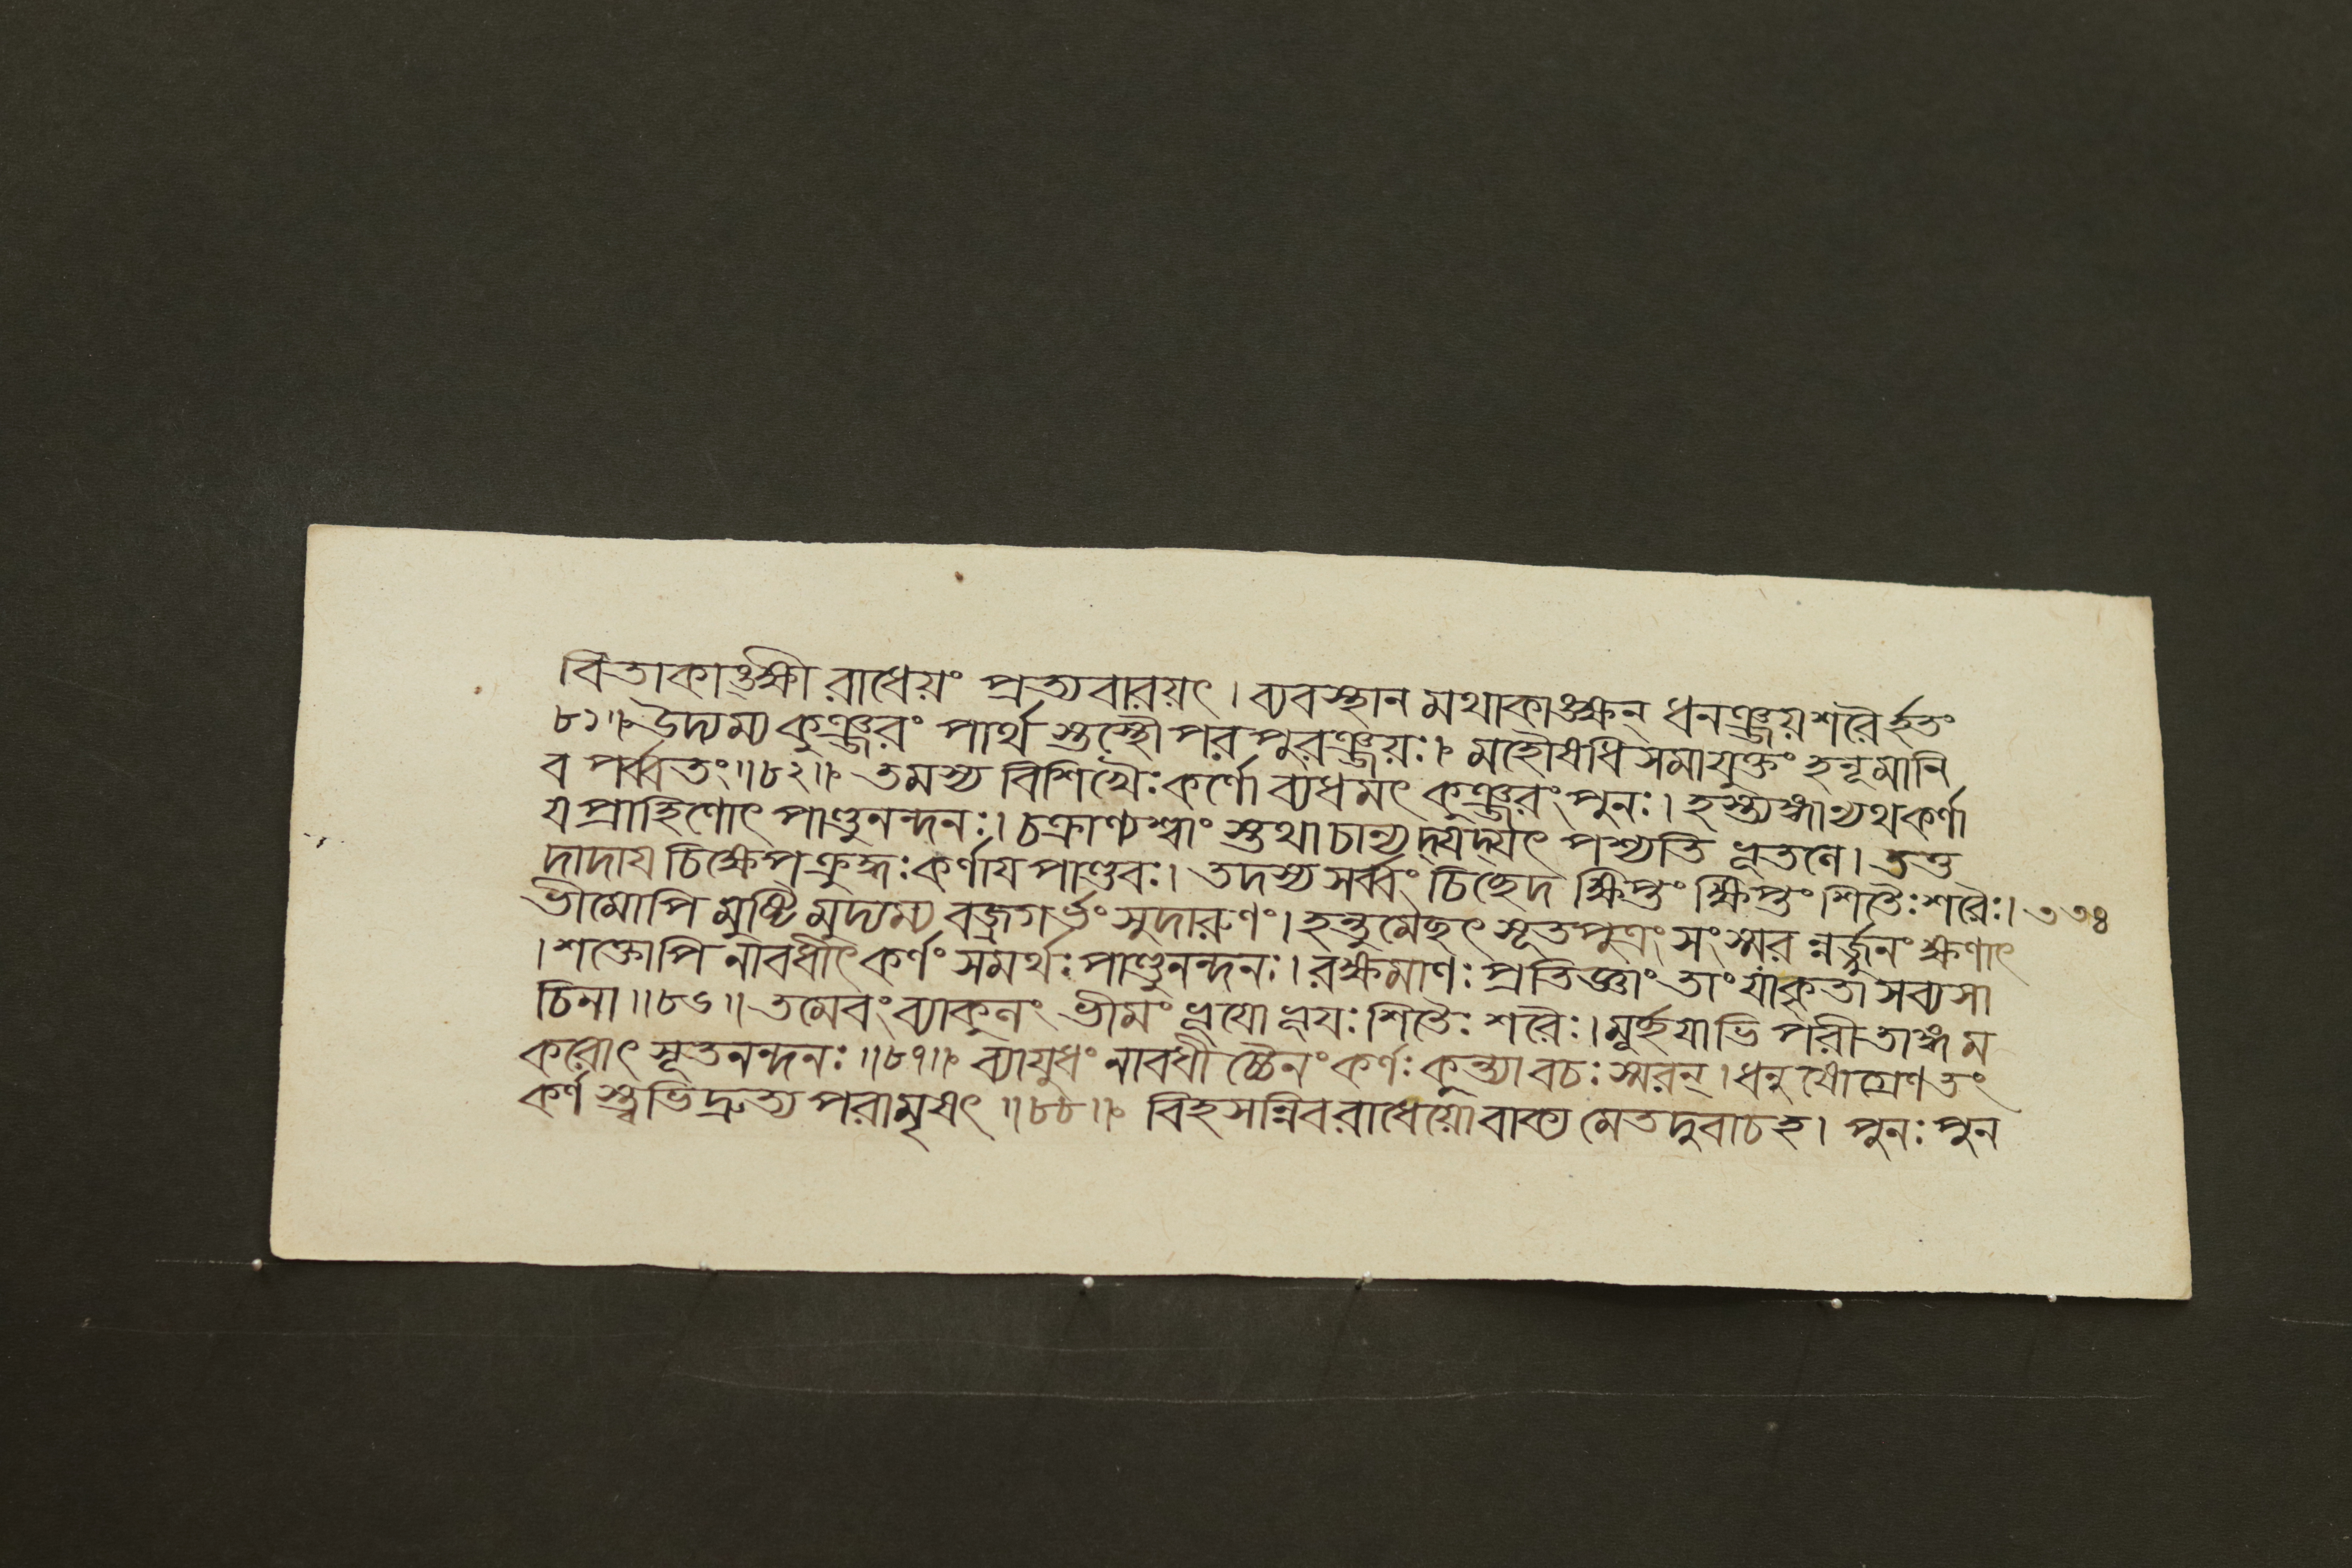 বিতাকাঙ্ক্ষী রাধেয়ং প্রত্যবারয়ৎ। ব্যবস্থান মথাকাঙ্ক্ষন্ ধনঞ্জয়শরৈর্হতং
৮১॥ উদ্যম্য কুঞ্জরং পার্থ স্তস্থৌ পরপুরঞ্জয়ঃ। মহৌষধি সমাযুক্তং হনূমানি
ব পর্ব্বতং॥৮২॥ তমস্য বিশিখৈঃ কর্ণো ব্যধমৎ কুঞ্জরং পুনঃ। হস্ত্যঙ্গান্যথ কর্ণা
য প্রাহিণোৎ পাণ্ডুনন্দনঃ। চক্রাণ্যশ্বাং স্তথা চান্যদ্যদ্যৎ পশ্যতি ভূতলে। তত্ত
দাদায চিক্ষেপ ক্রুদ্ধঃ কর্ণায পাণ্ডবঃ। তদস্য সর্ব্বং চিচ্ছেদ ক্ষিপ্তং ক্ষিপ্তং শিতৈঃ শরৈঃ। ৩৩৪
ভীমোপি মুষ্টি মুদ্যম্য বজ্রগর্ভং সুদারুণং। হন্তুমৈছৎ সূতপুত্রং সংস্মর ন্নর্জ্জুনং ক্ষণাৎ
। শক্তোপি নাবধীৎ কর্ণং সমর্থঃ পাণ্ডুনন্দনঃ। রক্ষমাণঃ প্রতিজ্ঞাং তাং যা কৃতা সব্যসা
চিনা॥৮৬॥ তমেবং ব্যাকুলং ভীমং ভূযো ভূযঃ শিতৈঃ শরৈঃ। মূর্হযাভি পরীতাঙ্গ ম
করোৎ সূতনন্দনঃ॥৮৭॥ ব্যাযুধং নাবধী চ্চৈনং কর্ণঃ কুন্ত্যা বচঃ স্মরন্। ধনুষোগ্রেণ তং
কর্ণ স্ত্বভিদ্রুত্য পরামৃষৎ॥৮৮॥ বিহসন্নিব রাধেয়ো বাক্য মেতদুবাচ হ। পুনঃ পুন